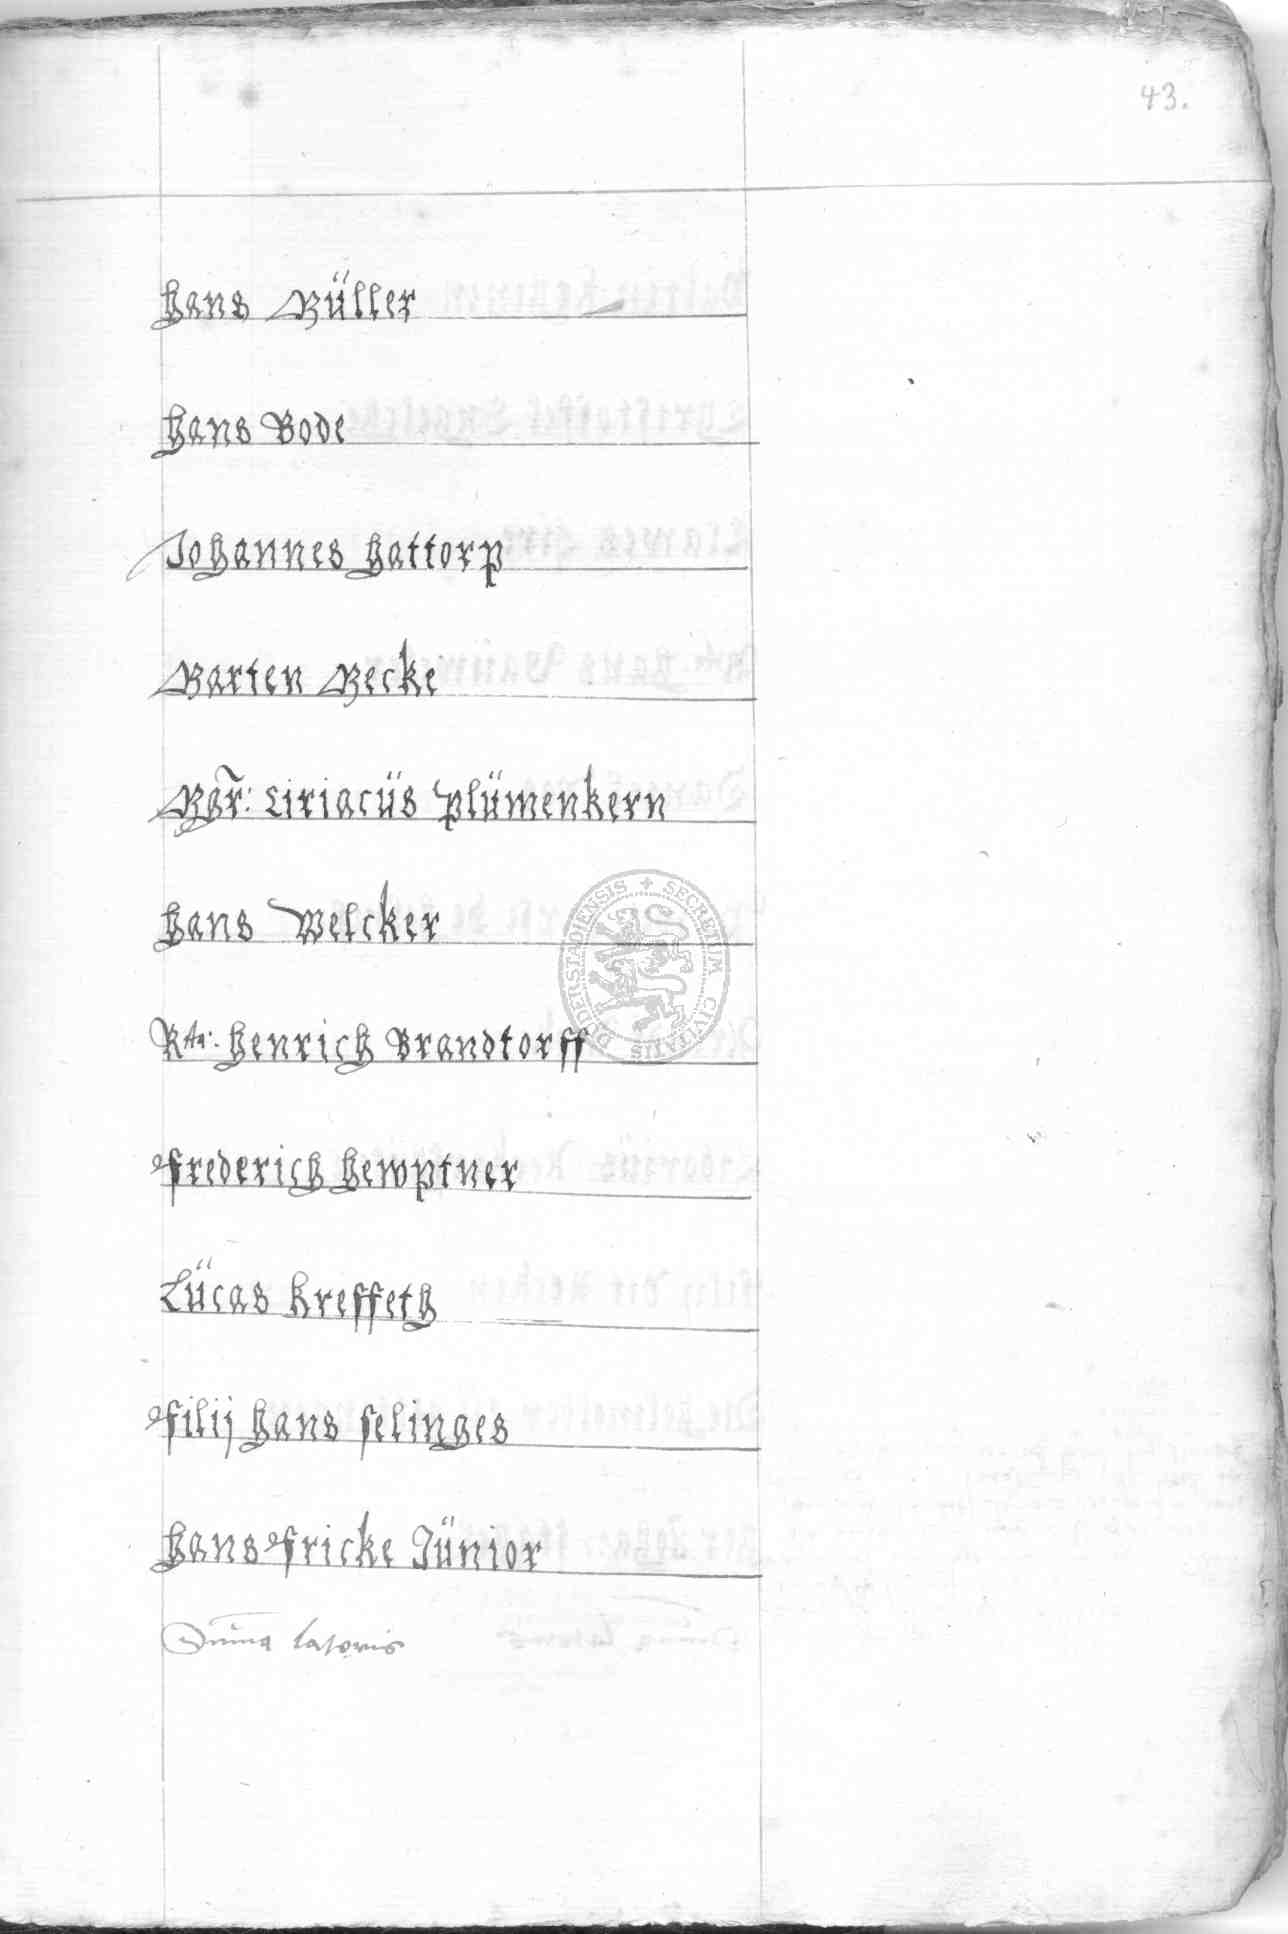 43.
Hans Müller
Hans Bode
Johannes Hattorp
Marten Mecke
Mgr: Ciriacüs Plümenkern
Hans Welcker
DUDERSTADIENSIS + SECRETUM CIVITATIS
Henrich Brandtorff
Frederich Hewptner
Lücas Kreffeth
Filij Hans Selinges
Hans Fricke Jünior
Suma Lateris